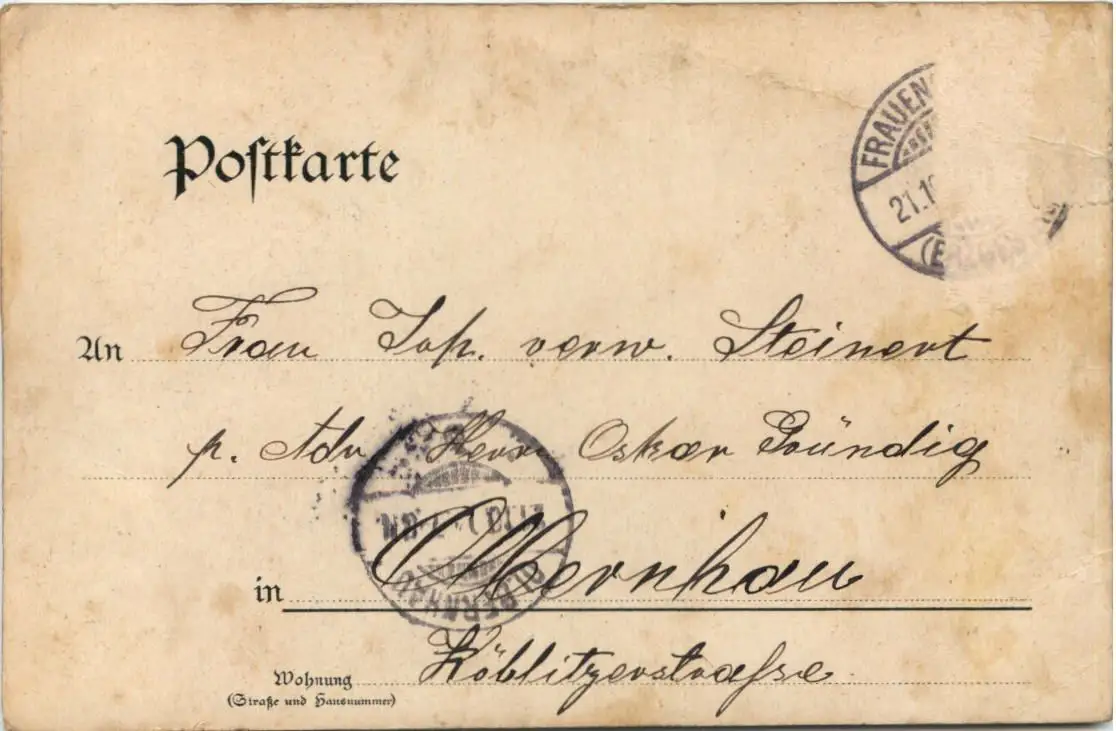 Postkarte
FRAUEN
21.1
An Frau Joh. verw. Steinert
p. Adr. Herrn Oskar Gründig
OLBERNHAU
21.10. 7-8N.
in Olbernhau
Wohnung
(Straße und Hausnummer)
Köblitzerstraße